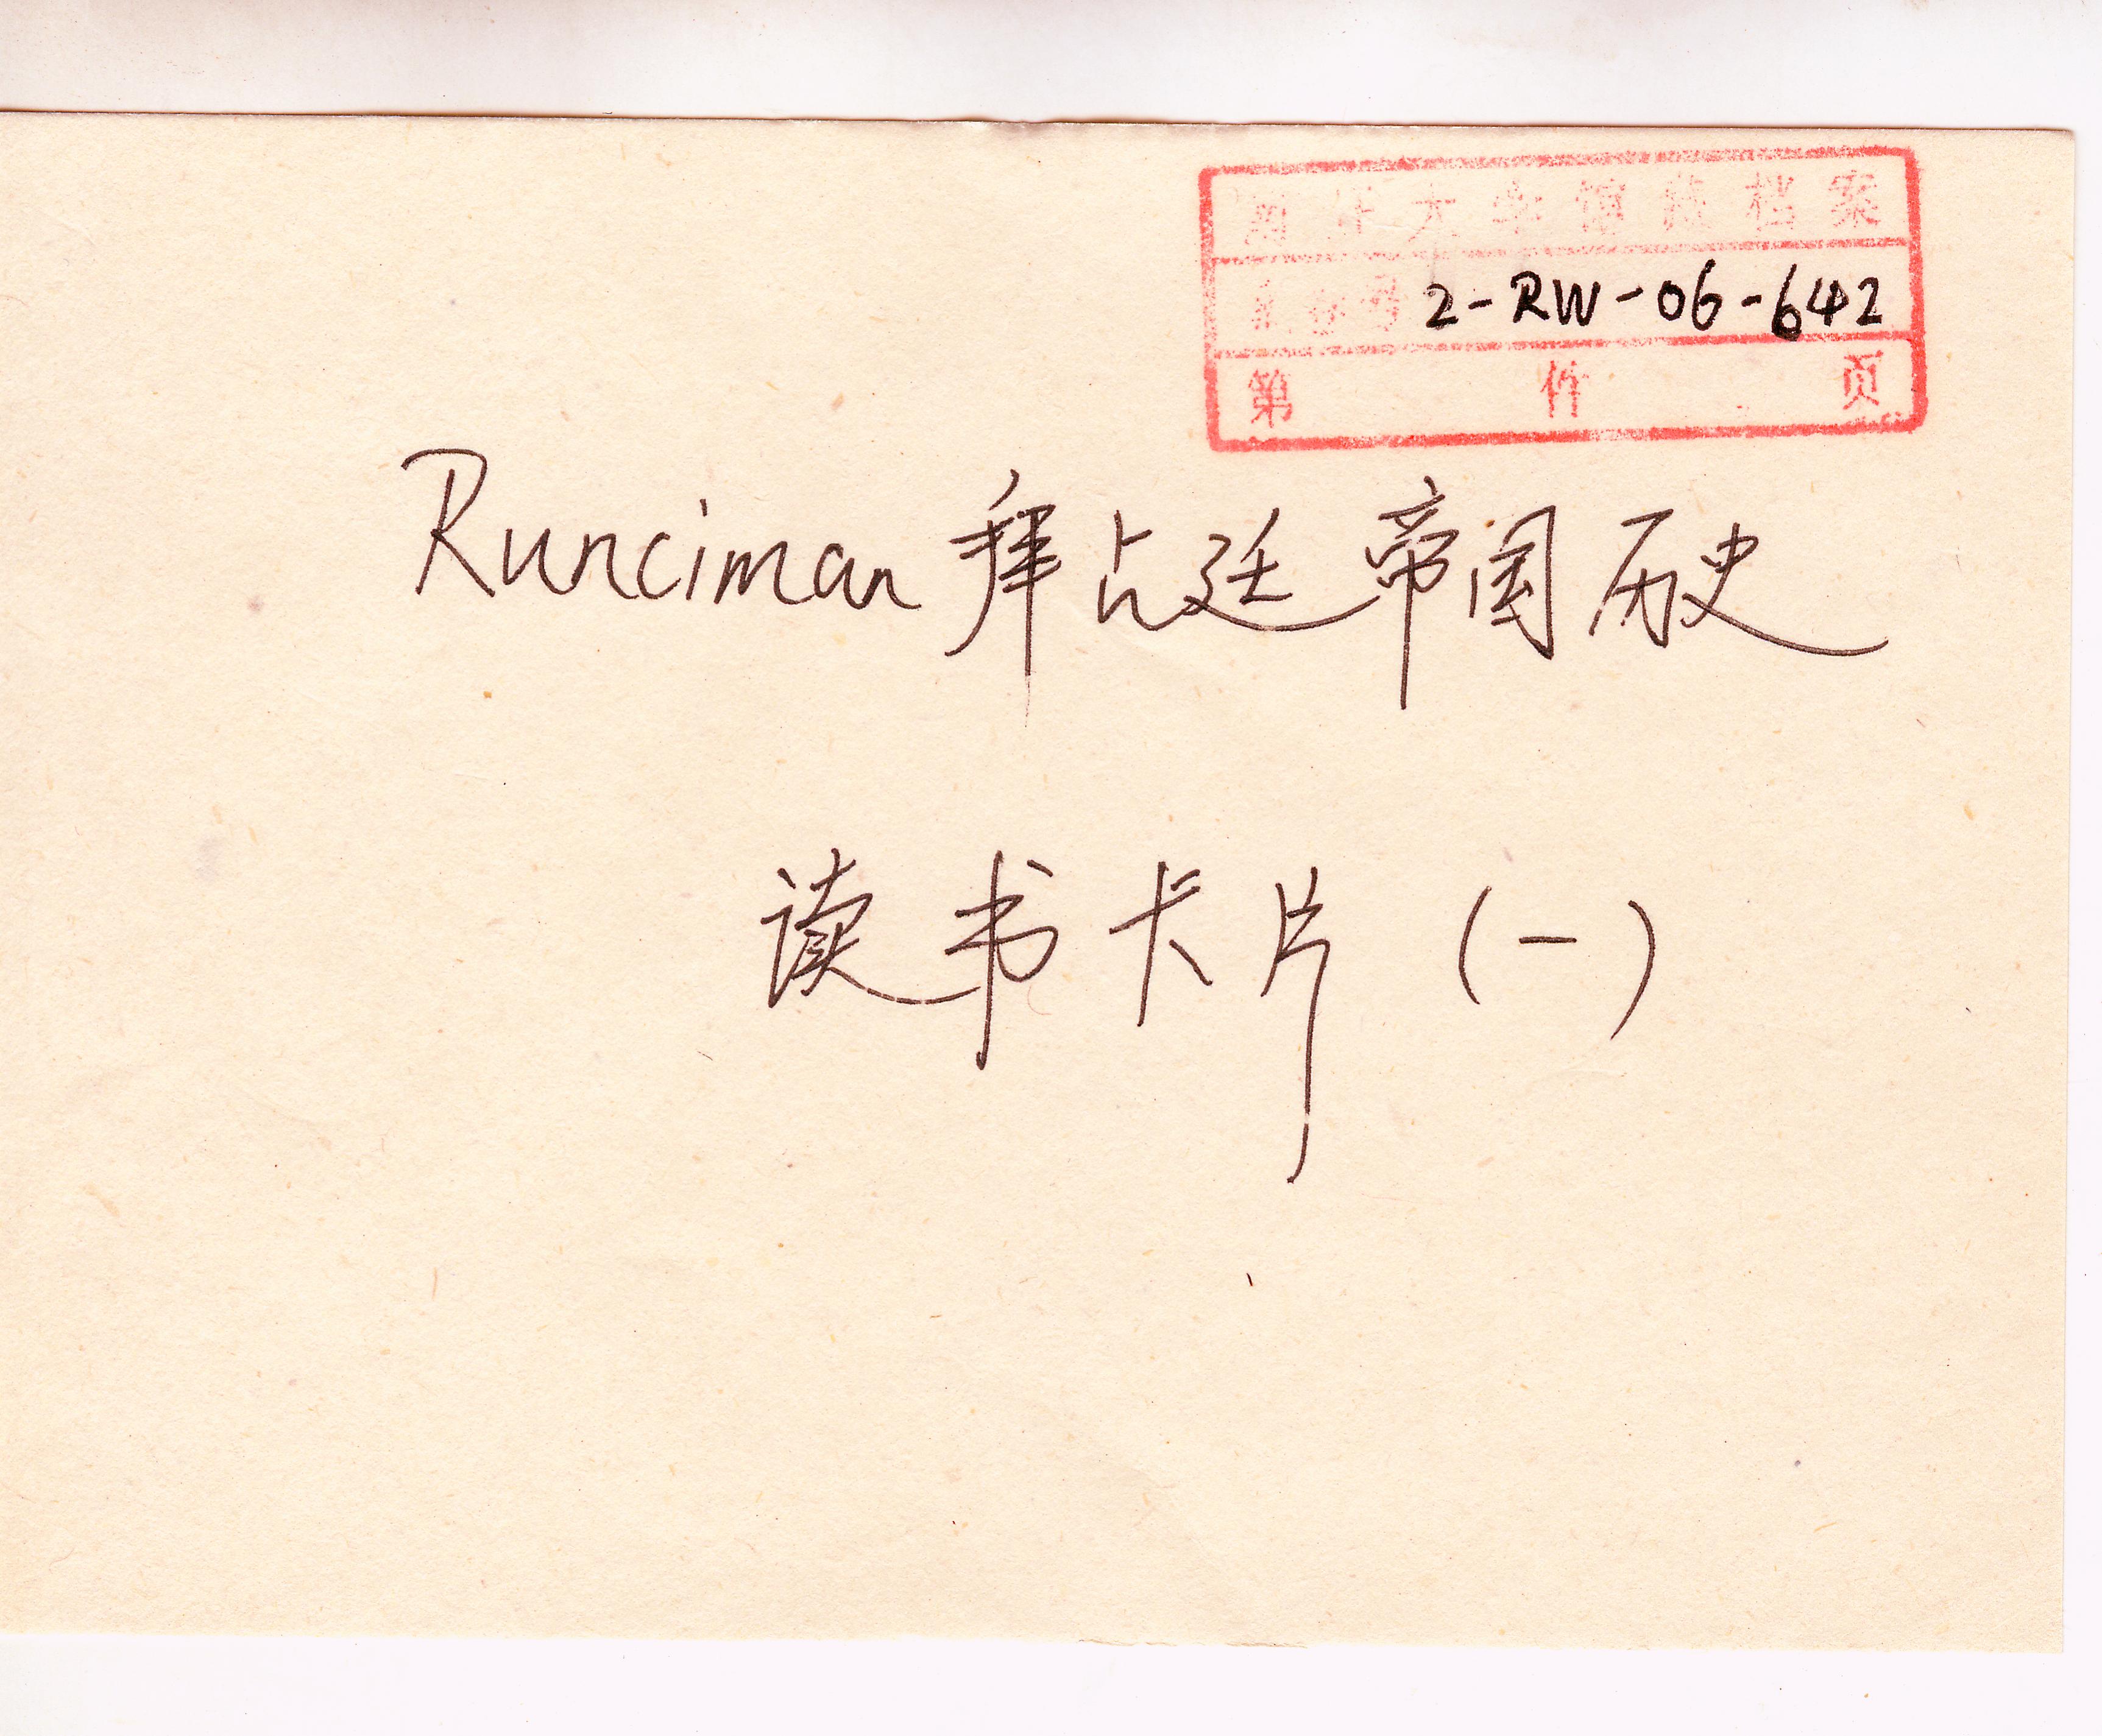 南开大学馆藏档案
2-RW-06-642
第 件 页
Runciman 拜占廷帝国历史
读书卡片(一)